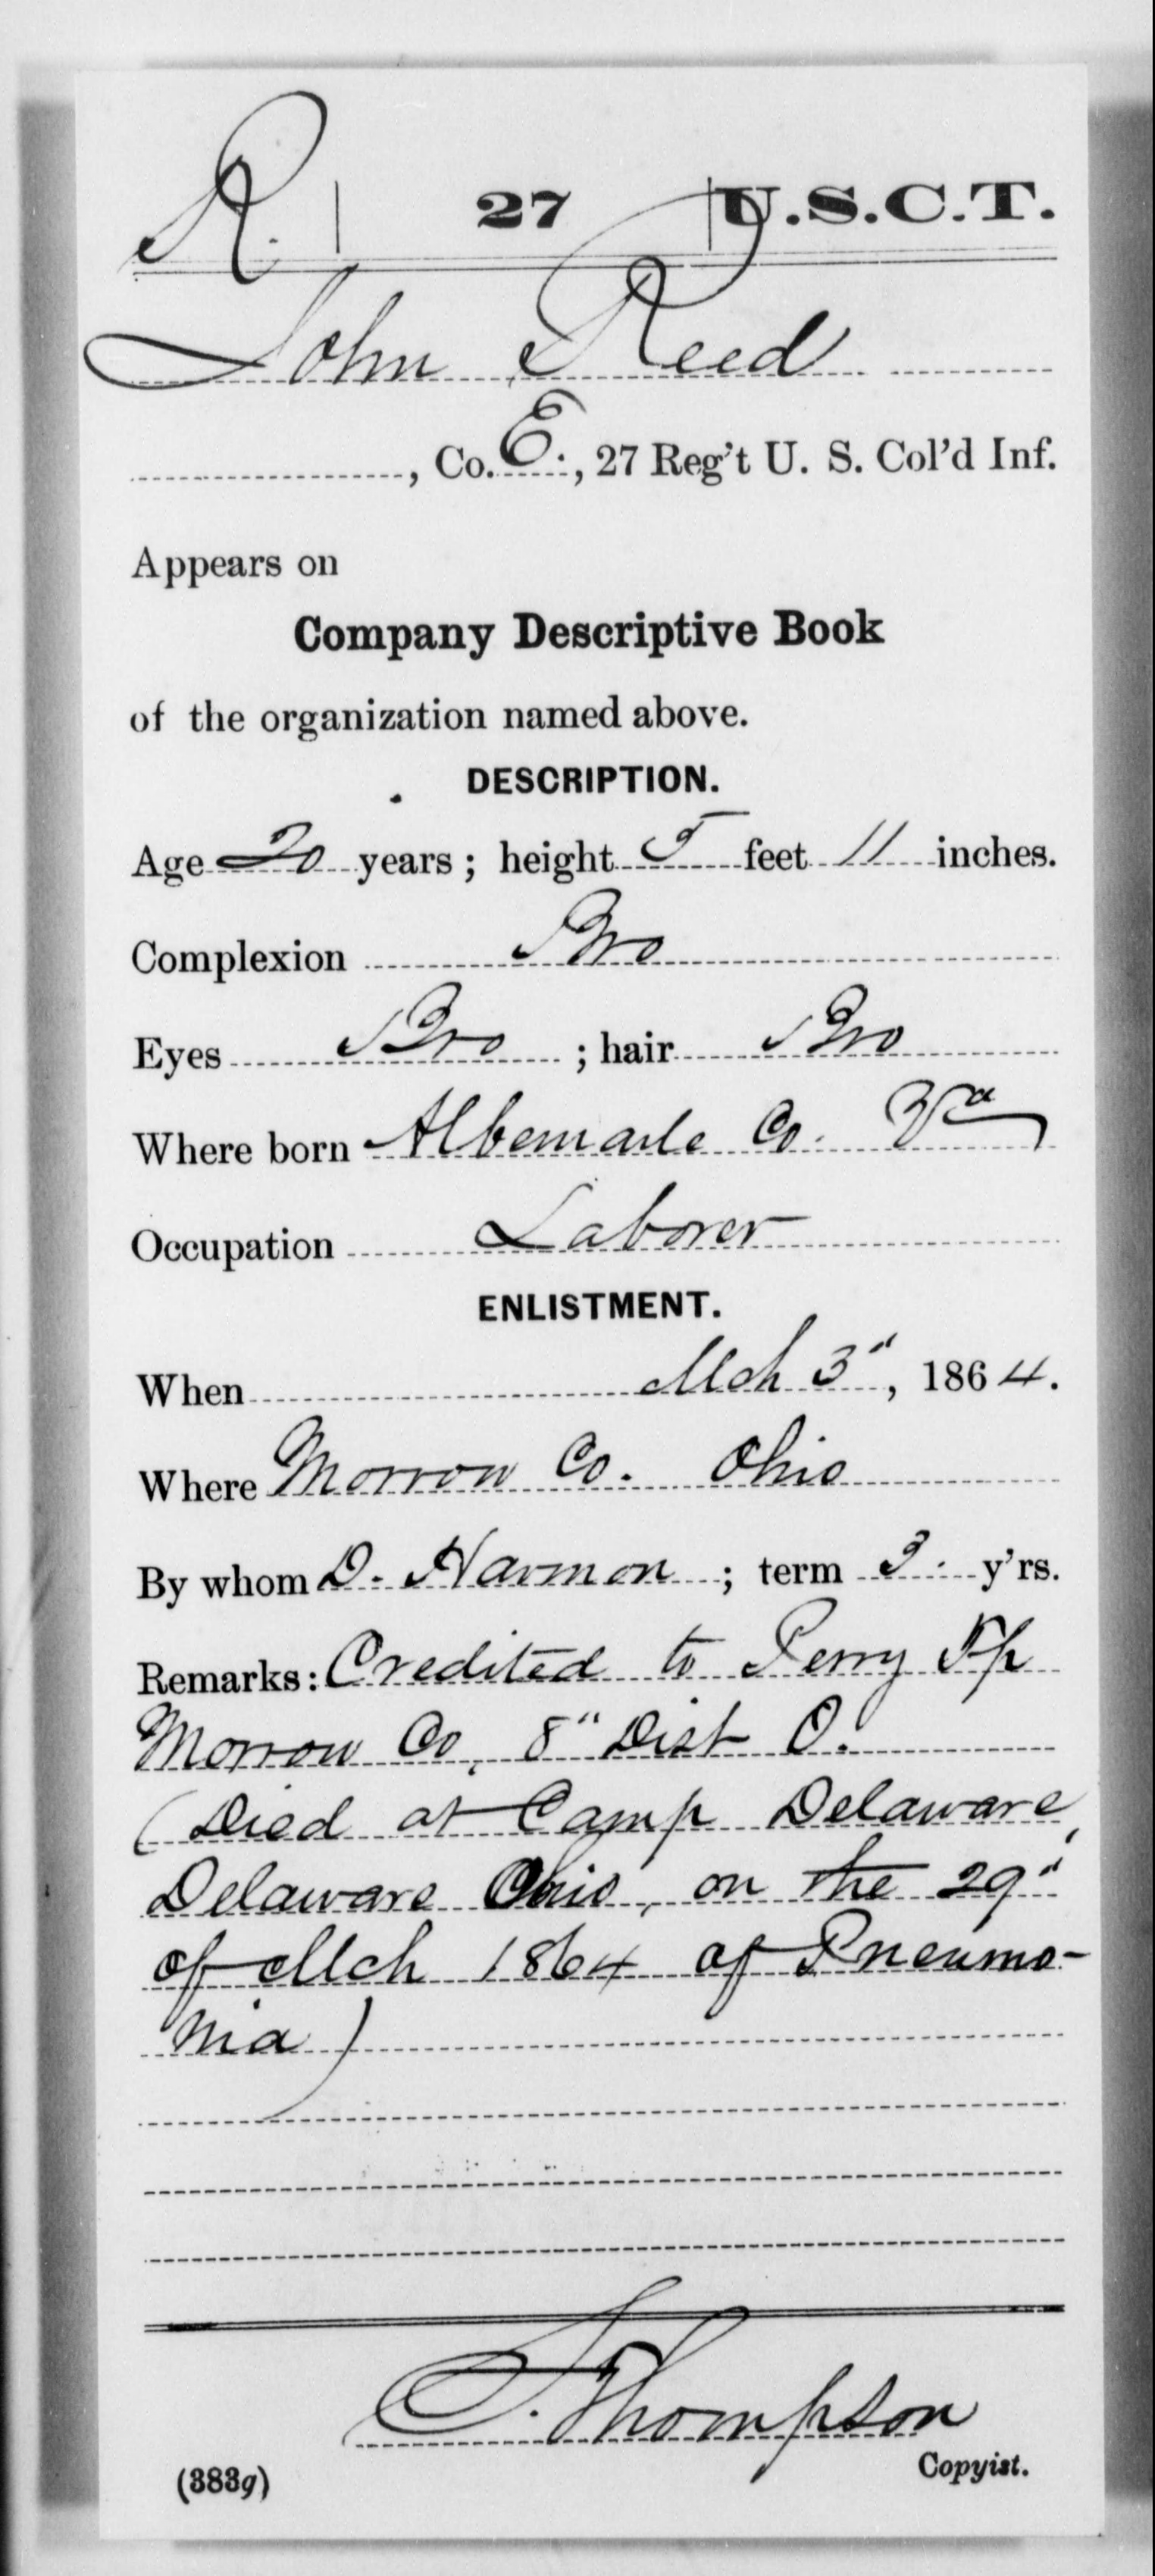 R. 27 U.S.C.T.
John Reed
, Co. E., 27 Reg't U. S. Col'd Inf.
Appears on
Company Descriptive Book
of the organization named above.
DESCRIPTION.
Age 20 years; height 5 feet 11 inches.
Complexion Bro
Eyes Bro ; hair Bro
Where born Albemarle Co. Va
Occupation Laborer
ENLISTMENT.
When Mch 3", 1864.
Where Morrow Co. Ohio
By whom D. Harmon ; term 3 y'rs.
Remarks: Credited to Perry Tp
Morrow Co, 8" Dist O.
(Died at Camp Delaware,
Delaware Ohio, on the 29"
of Mch 1864 of Pneumo-
nia)
Thompson
(383g) Copyist.